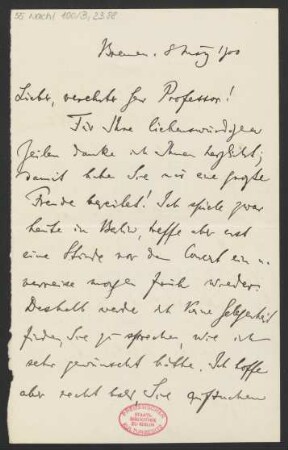 55 Nachl 100/B, 2388
Bremen. 8 März 1900
Lieber, verehrter Herr Professor!
Für Ihre liebenswürdigen
Zeilen danke ich Ihnen herzlichst;
damit haben Sie mir eine große
Freude bereitet! Ich spiele zwar
heute in Berlin, treffe aber erst
eine Stunde vor dem Concert ein u.
verreise morgen früh wieder.
Deshalb werde ich keine Gelegenheit
finden, Sie zu sprechen, wie ich
sehr gewünscht hätte. Ich hoffe
aber recht bald Sie aufsuchen
STAATS-
BIBLIOTHEK
ZU BERLIN